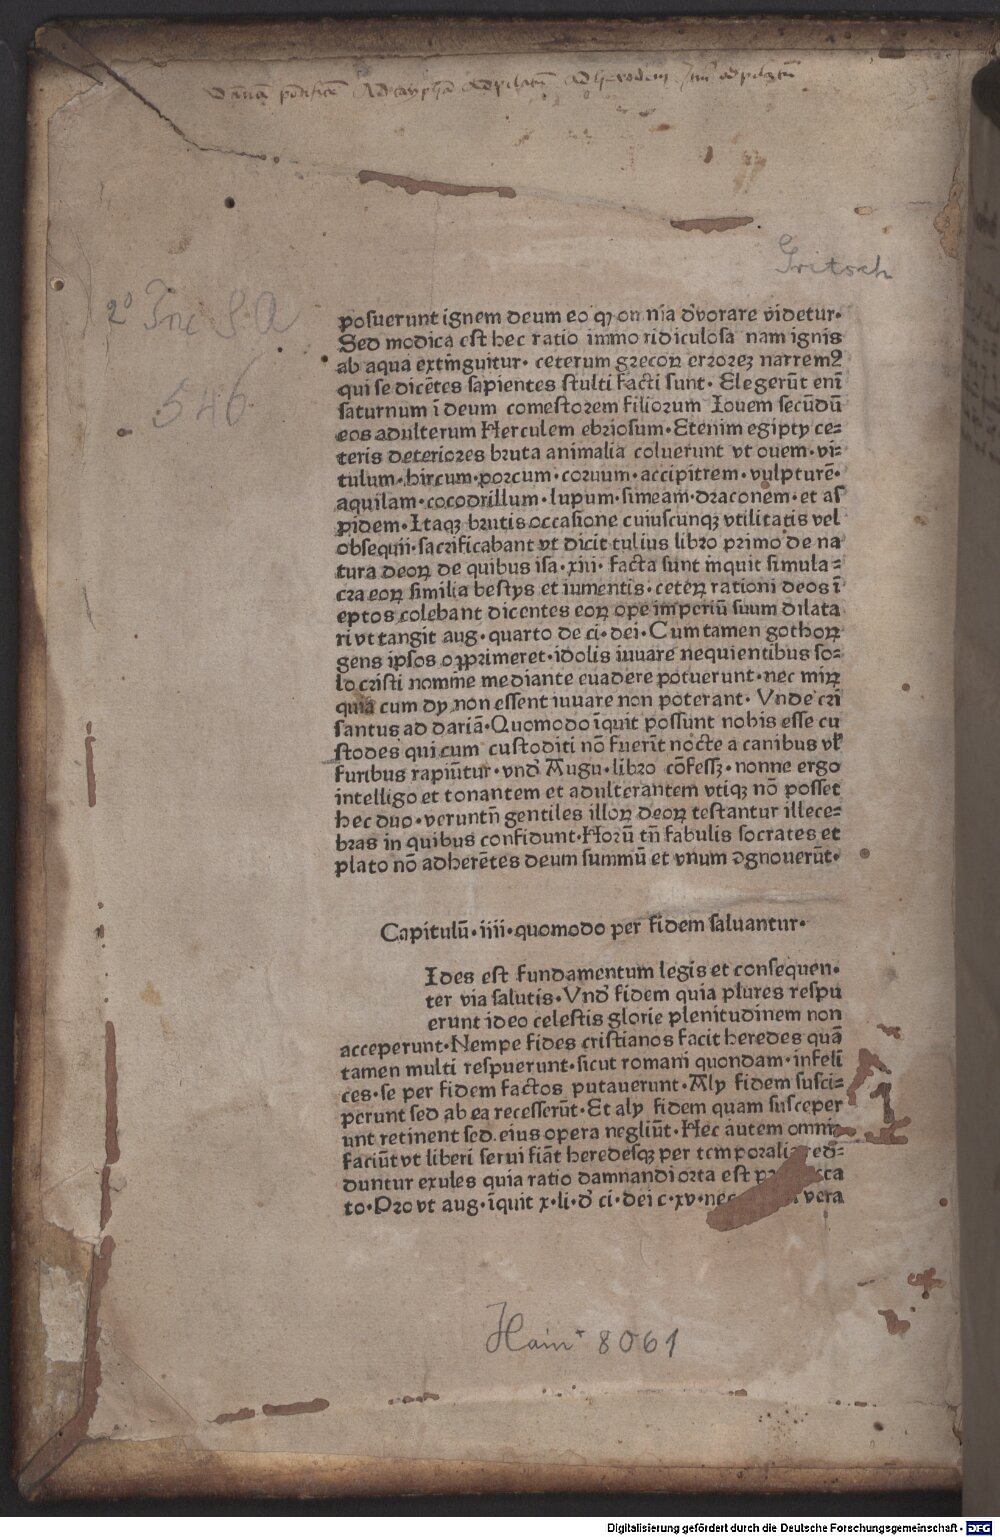 Ad annā pōtificē Ad cayphā Ad pilatū Ad herodem
Gritsch
2° Inc S. A
546
posuerunt ignem deum eo ꝙ on nīa d'vorare videtur·
Sed modica est hec ratio immo ridiculosa nam ignis
ab aqua extinguitur· ceterum grecoꝝ errorez narrem⁹
qui se dicētes sapientes stulti facti sunt· Elegerūt enī
saturnum ī deum comestorem filiorum Iovem secūdū
eos adulterum Herculem ebriosum· Etenim egipty ce=
teris deteriores bruta animalia coluerunt vt ouem· vi=
tulum· hircum· porcum· coruum· accipitrem· vulpturē·
aquilam· cocodrillum· lupum· simeam· draconem· et as
pidem· Itaqꝫ brutis occasione cuiuscunqꝫ vtilitatis vel
obsequii· sacrificabant vt dicit tulius libro primo de na
tura deoꝝ de quibus isa· xiii· facta sunt inquit simula=
cra eoꝝ similia bestys et iumentis· ceteꝝ rationi deos ī
eptos colebant dicentes eoꝝ ope imperiū suum dilata
ri vt tangit aug· quarto de ci· dei· Cum tamen gothoꝝ
gens ipsos opprimeret· idolis iuuare nequientibus so=
lo cristi nomine mediante euadere potuerunt· nec miꝝ
quia cum dy non essent iuuare non poterant· Vnde cri
santus ad dariā· Quomodo īquit possunt nobis esse cu
stodes qui cum custoditi nō fuerīt nocte a canibus vł
furibus rapiūtur· vnd' Augu· libro cōfess̄· nonne ergo
intelligo et tonantem et adulterantem vtiqꝫ nō posset
hec duo· veruntn̄ gentiles illoꝝ deoꝝ testantur illece=
bras in quibus confidunt· Horū tn̄ fabulis socrates et
plato nō adherētes deum summū et vnum ꝯgnouerūt·
Capitulū· iiii· quomodo per fidem saluantur·
Ides est fundamentum legis et consequen·
ter via salutis· Vnd' fidem quia plures respu
erunt ideo celestis glorie plenitudinem non
acceperunt· Nempe fides cristianos facit heredes quā
tamen multi respuerunt· sicut romani quondam· infeli
ces· se per fidem factos putauerunt· Aly fidem susci=
perunt sed ab ea recesserūt· Et aly fidem quam susceper
unt retinent sed· eius opera negliūt· Hec autem omnia
faciūt vt liberi serui fiāt heredesqꝫ per temporalia red=
duntur exules quia ratio damnandi orta est
to· Pro vt aug· īquit x· li· d' ci· dei c· xv· nec vera
Hain* 8061
Digitalisierung gefördert durch die Deutsche Forschungsgemeinschaft - DFG